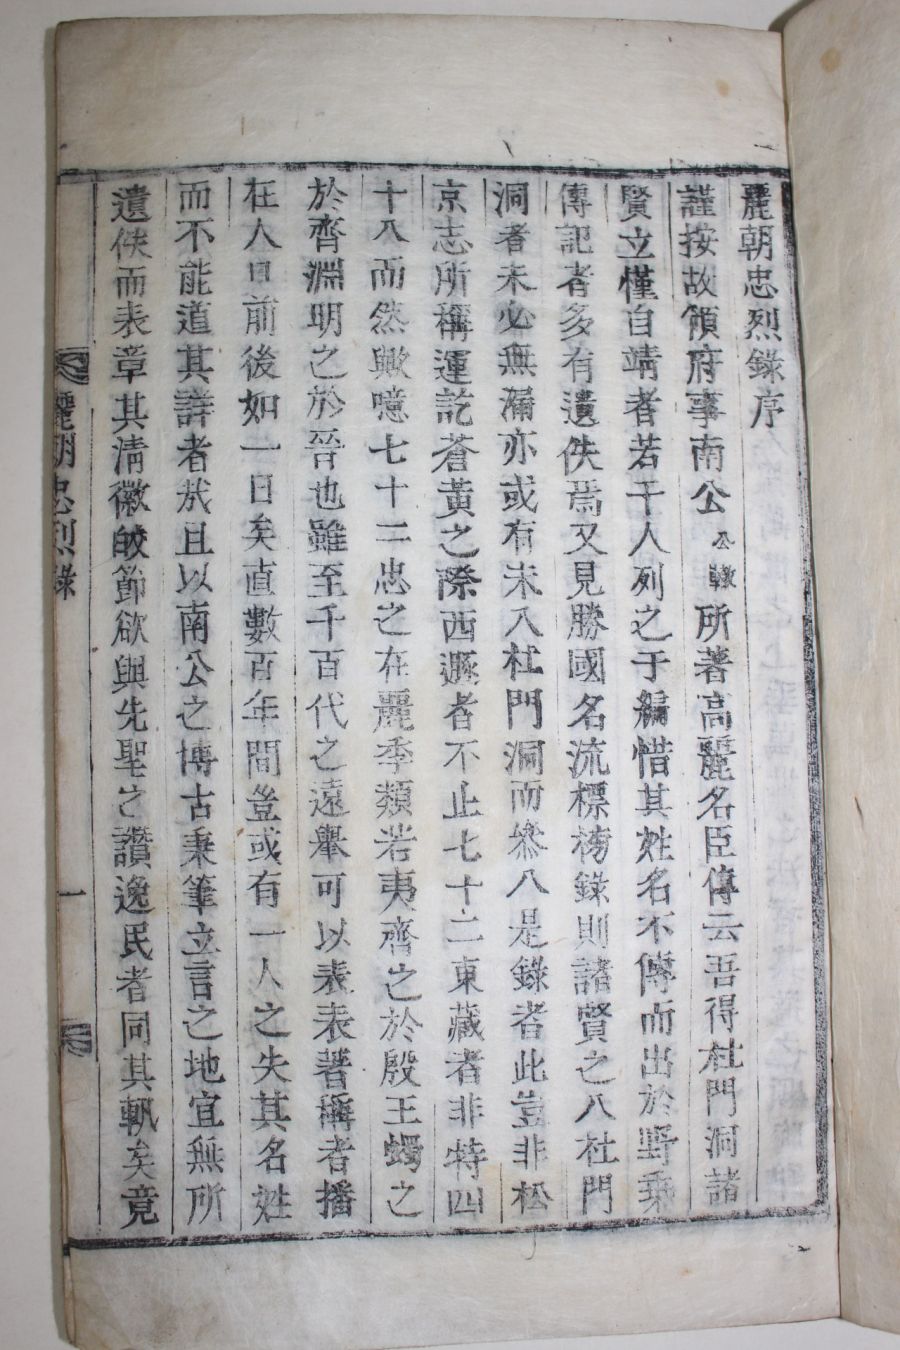 麗朝忠烈錄序
謹按故領府事南公公轍所著高麗名臣傳云吾得杜門洞諸
賢立慬自靖者若干人列之于編惜其姓名不傳而出於野乘
傳記者多有遺佚焉又見勝國名流標榜錄則諸賢之入杜門
洞者未必無漏亦或有未入杜門洞而叅入是錄者此豈非松
京志所稱運訖蒼黃之際西遯者不止七十二東藏者非特四
十八而然歟噫七十二忠之在麗季類若夷齊之於殷王蠋之
於齊淵明之於晉也雖至千百代之遠擧可以表表著稱者播
在人口前後如一日矣直數百年間豈或有一人之失其名姓
而不能道其詳者哉且以南公之博古秉筆立言之地宜無所
遺佚而表章其清徽皎節欲與先聖之讚逸民者同其軌矣竟
麗朝忠烈錄
一